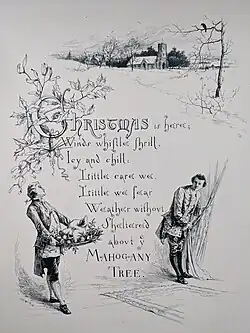 CHRISTMAS is here;
Winds whistle shrill,
Icy and chill,
Little care we:
Little we fear
Weather without
Sheltered
about yͤ
MAHOGANY
TREE.